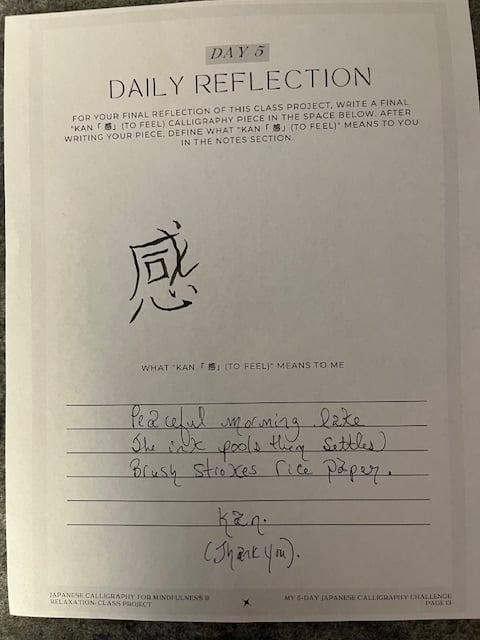 DAY 5
DAILY REFLECTION
FOR YOUR FINAL REFLECTION OF THIS CLASS PROJECT, WRITE A FINAL
"KAN「感」(TO FEEL) CALLIGRAPHY PIECE IN THE SPACE BELOW. AFTER
WRITING YOUR PIECE, DEFINE WHAT "KAN「感」(TO FEEL)" MEANS TO YOU
IN THE NOTES SECTION.
感
WHAT "KAN「感」(TO FEEL)" MEANS TO ME
Peaceful morning lake
The ink pools then settles
Brush strokes rice paper.
Kan.
(Thank you).
JAPANESE CALLIGRAPHY FOR MINDFULNESS &
RELAXATION: CLASS PROJECT
MY 5-DAY JAPANESE CALLIGRAPHY CHALLENGE
PAGE 13